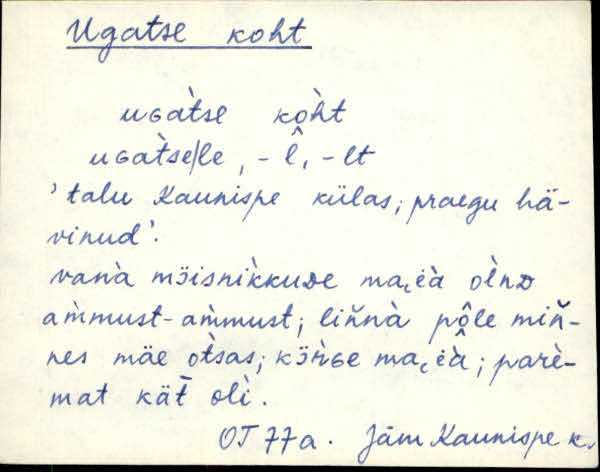 Ugatse koht
uɢàtse kòht
uɢàtse/le, -l̂, -lt
'talu Kaunispe külas; praegu hä-
vinud'.
vanà mɔ̈isnìkkuᴅe ma,ëà olnᴅ
am̀must-am̀must; liňnà pôle miň-
nes mäe òtsas; kɔ̈ǹɢe ma,ëà̂; parè-
mat kät̄ olì.
OT 77a. Jäm Kaunispe k.